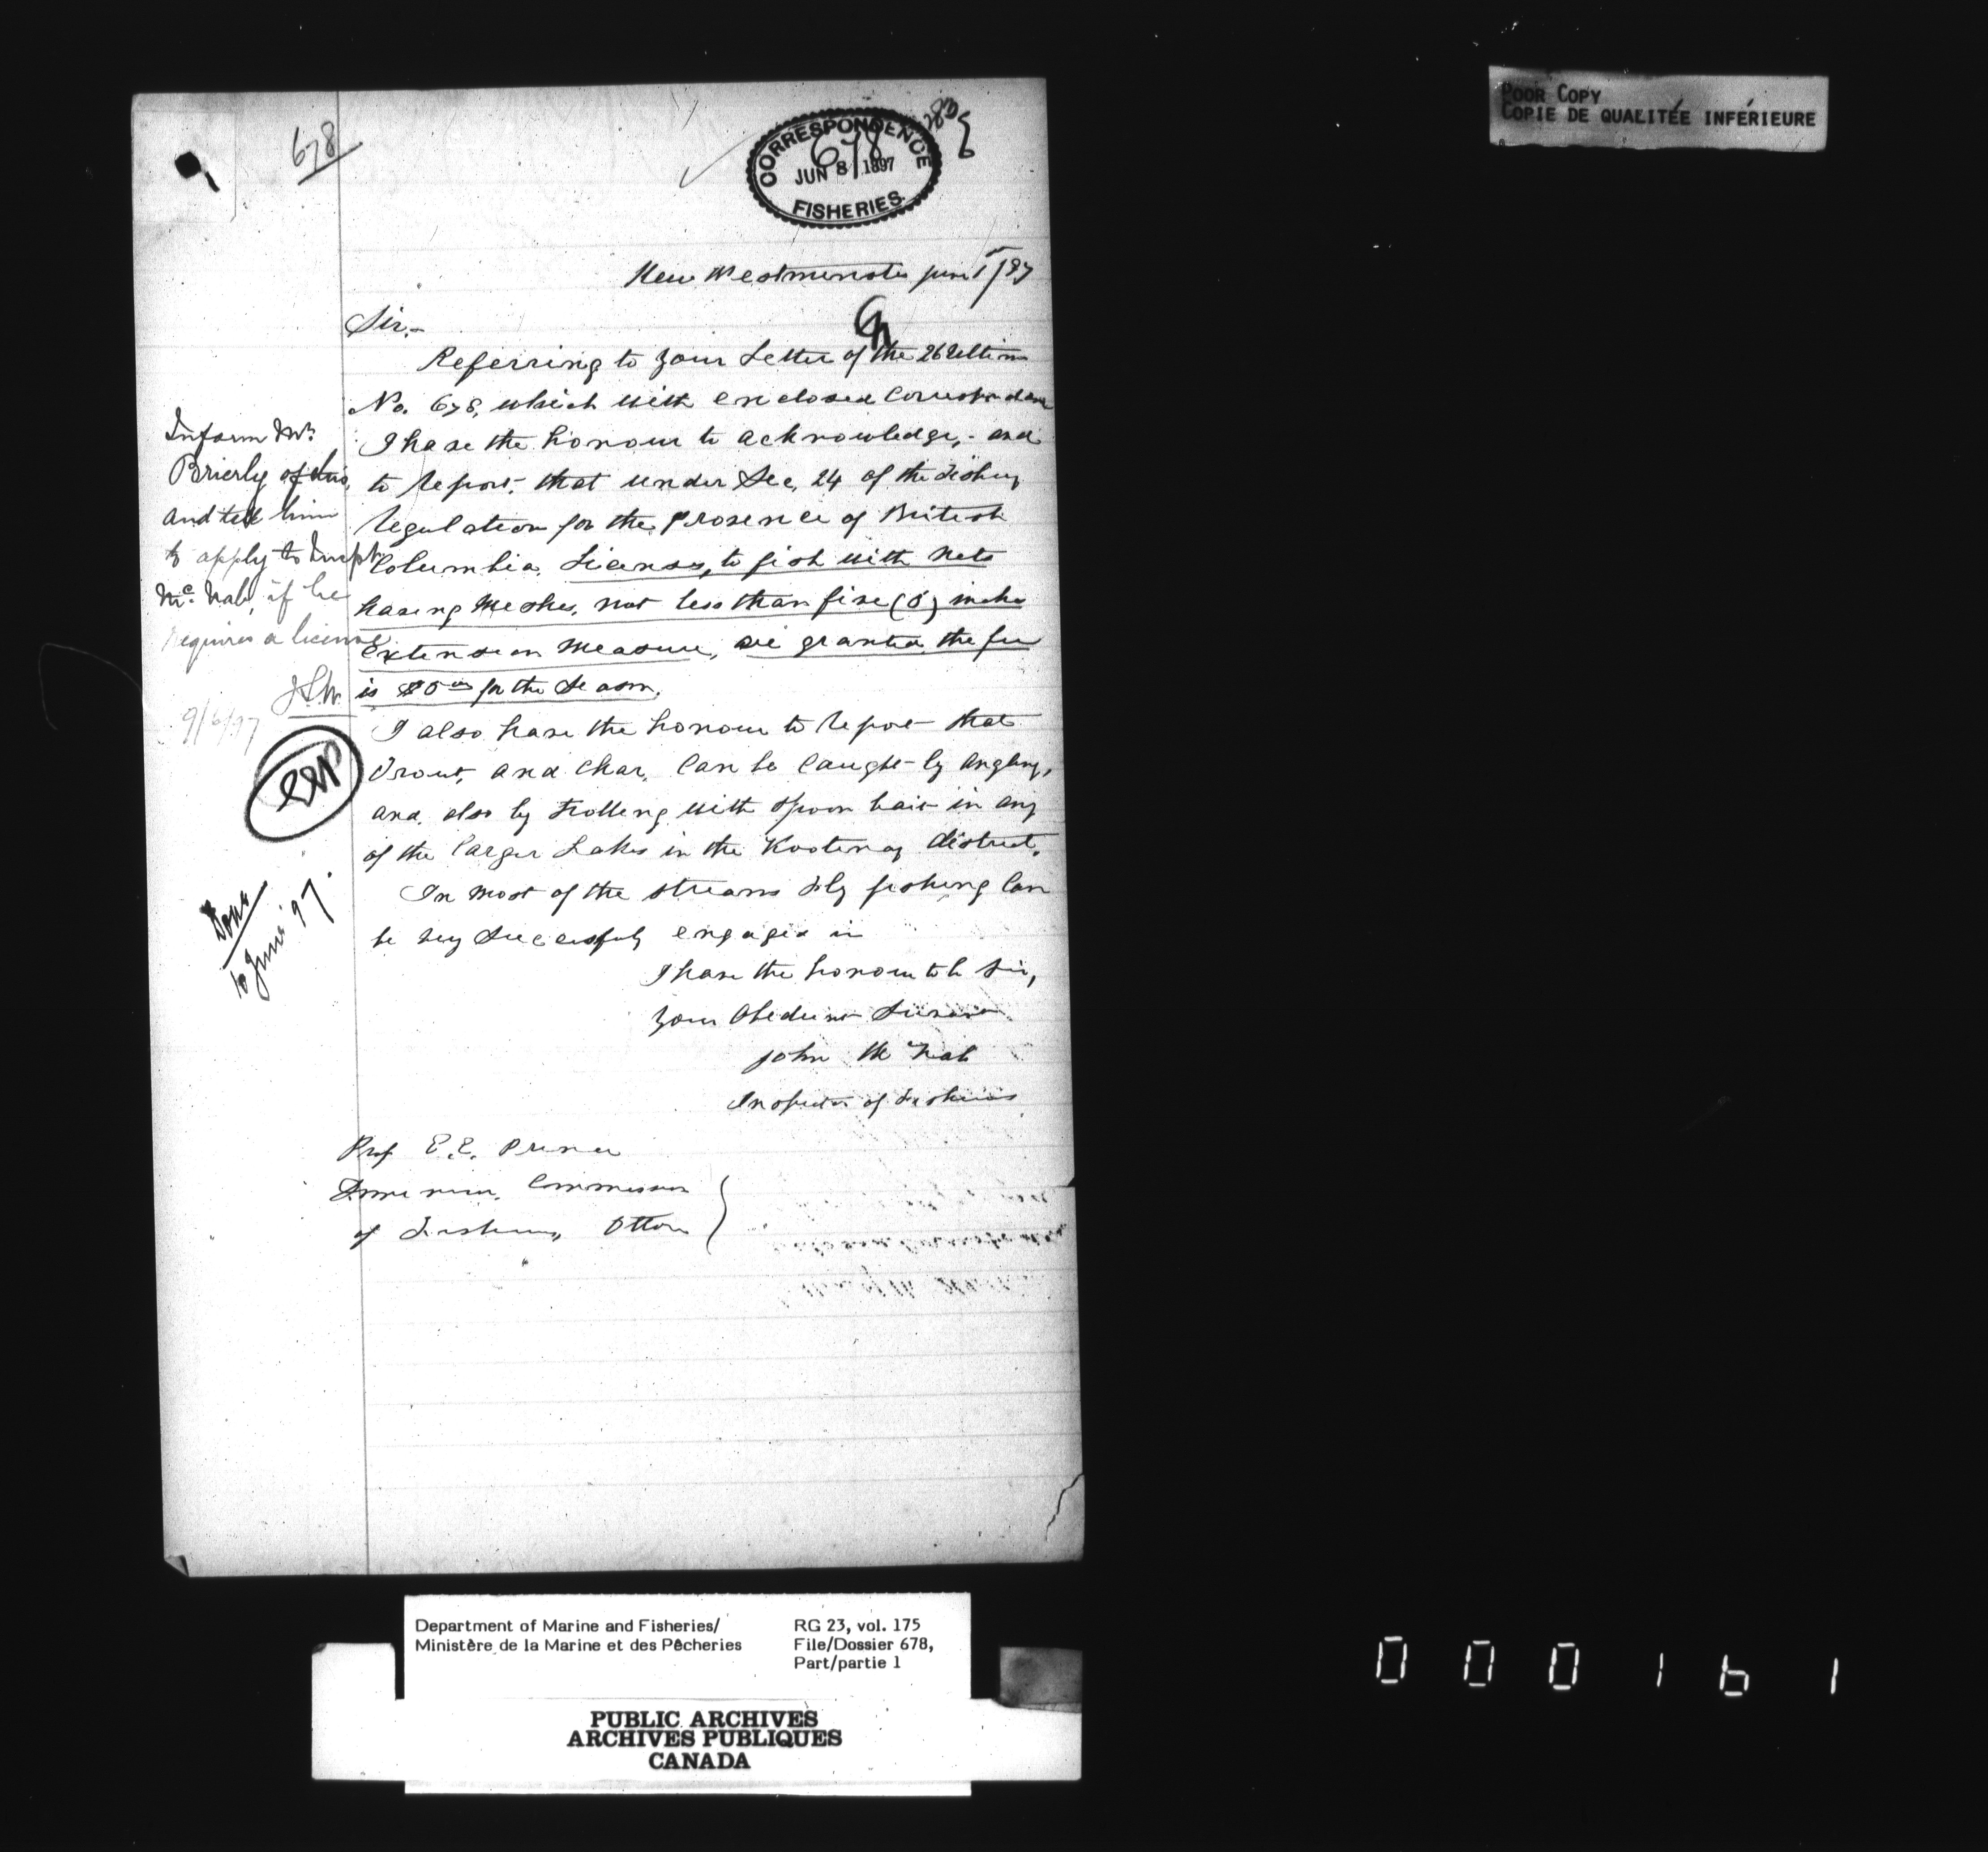 POOR COPY
COPIE DE QUALITÉE INFÉRIEURE
678
CORRESPONDENCE
678
JUN 8 1897
FISHERIES.
New Westminster June 1st/97
Sir,-
Referring to your Letter of the 26 Ultimo
No. 678, which with enclosed Correspondence
I have the honour to acknowledge,- and
to report, that under Sec. 24 of the Fishery
regulation for the Provence of British
Columbia, Licenses, to fish with nets
having meshes, not less than five (5) inches
extension measure, are granted, the fee
is $5 00 for the Season.
I also have the honour to report that
Trout, and Char, can be caught by angling,
and, also by trolling with spoon bait in any
of the larger Lakes in the Kootenay district.
In most of the streams Fly fishing can
be very successfuly engaged in
I have the honour to be Sir,
Your Obedient Servant
John McNab
Inspector of Fisheries
Prof E. E. Prince
Dominion, Commissioner
of Fisheries, Ottawa
Inform Mr.
Brierly of this,
and tell him
to apply to Inspr.
McNab, if he
requires a license.
9/6/97
EEP
Done
10 June '97.
Department of Marine and Fisheries/
Ministère de la Marine et des Pêcheries
RG 23, vol. 175
File/Dossier 678,
Part/partie 1
PUBLIC ARCHIVES
ARCHIVES PUBLIQUES
CANADA
000161